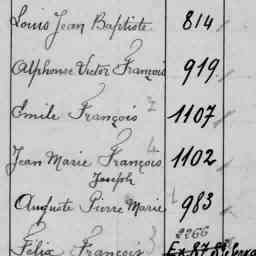 Louis Jean Baptiste 814
Alphonse Victor François 919
Emile François 2 1107
Jean Marie François 4 1102
Joseph
Auguste Pierre Marie 1 983
2266
Félix François 3